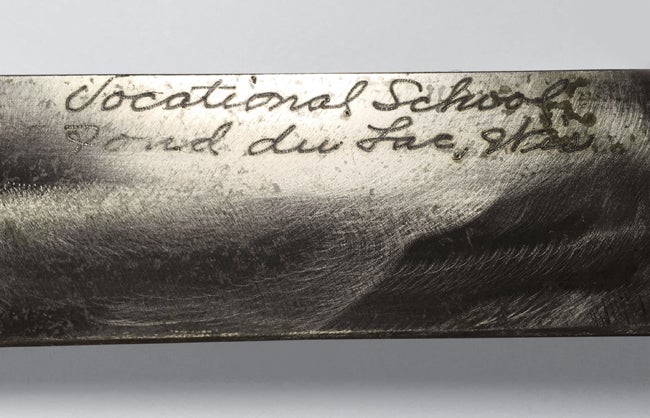 Vocational School
Fond du Lac, Wis